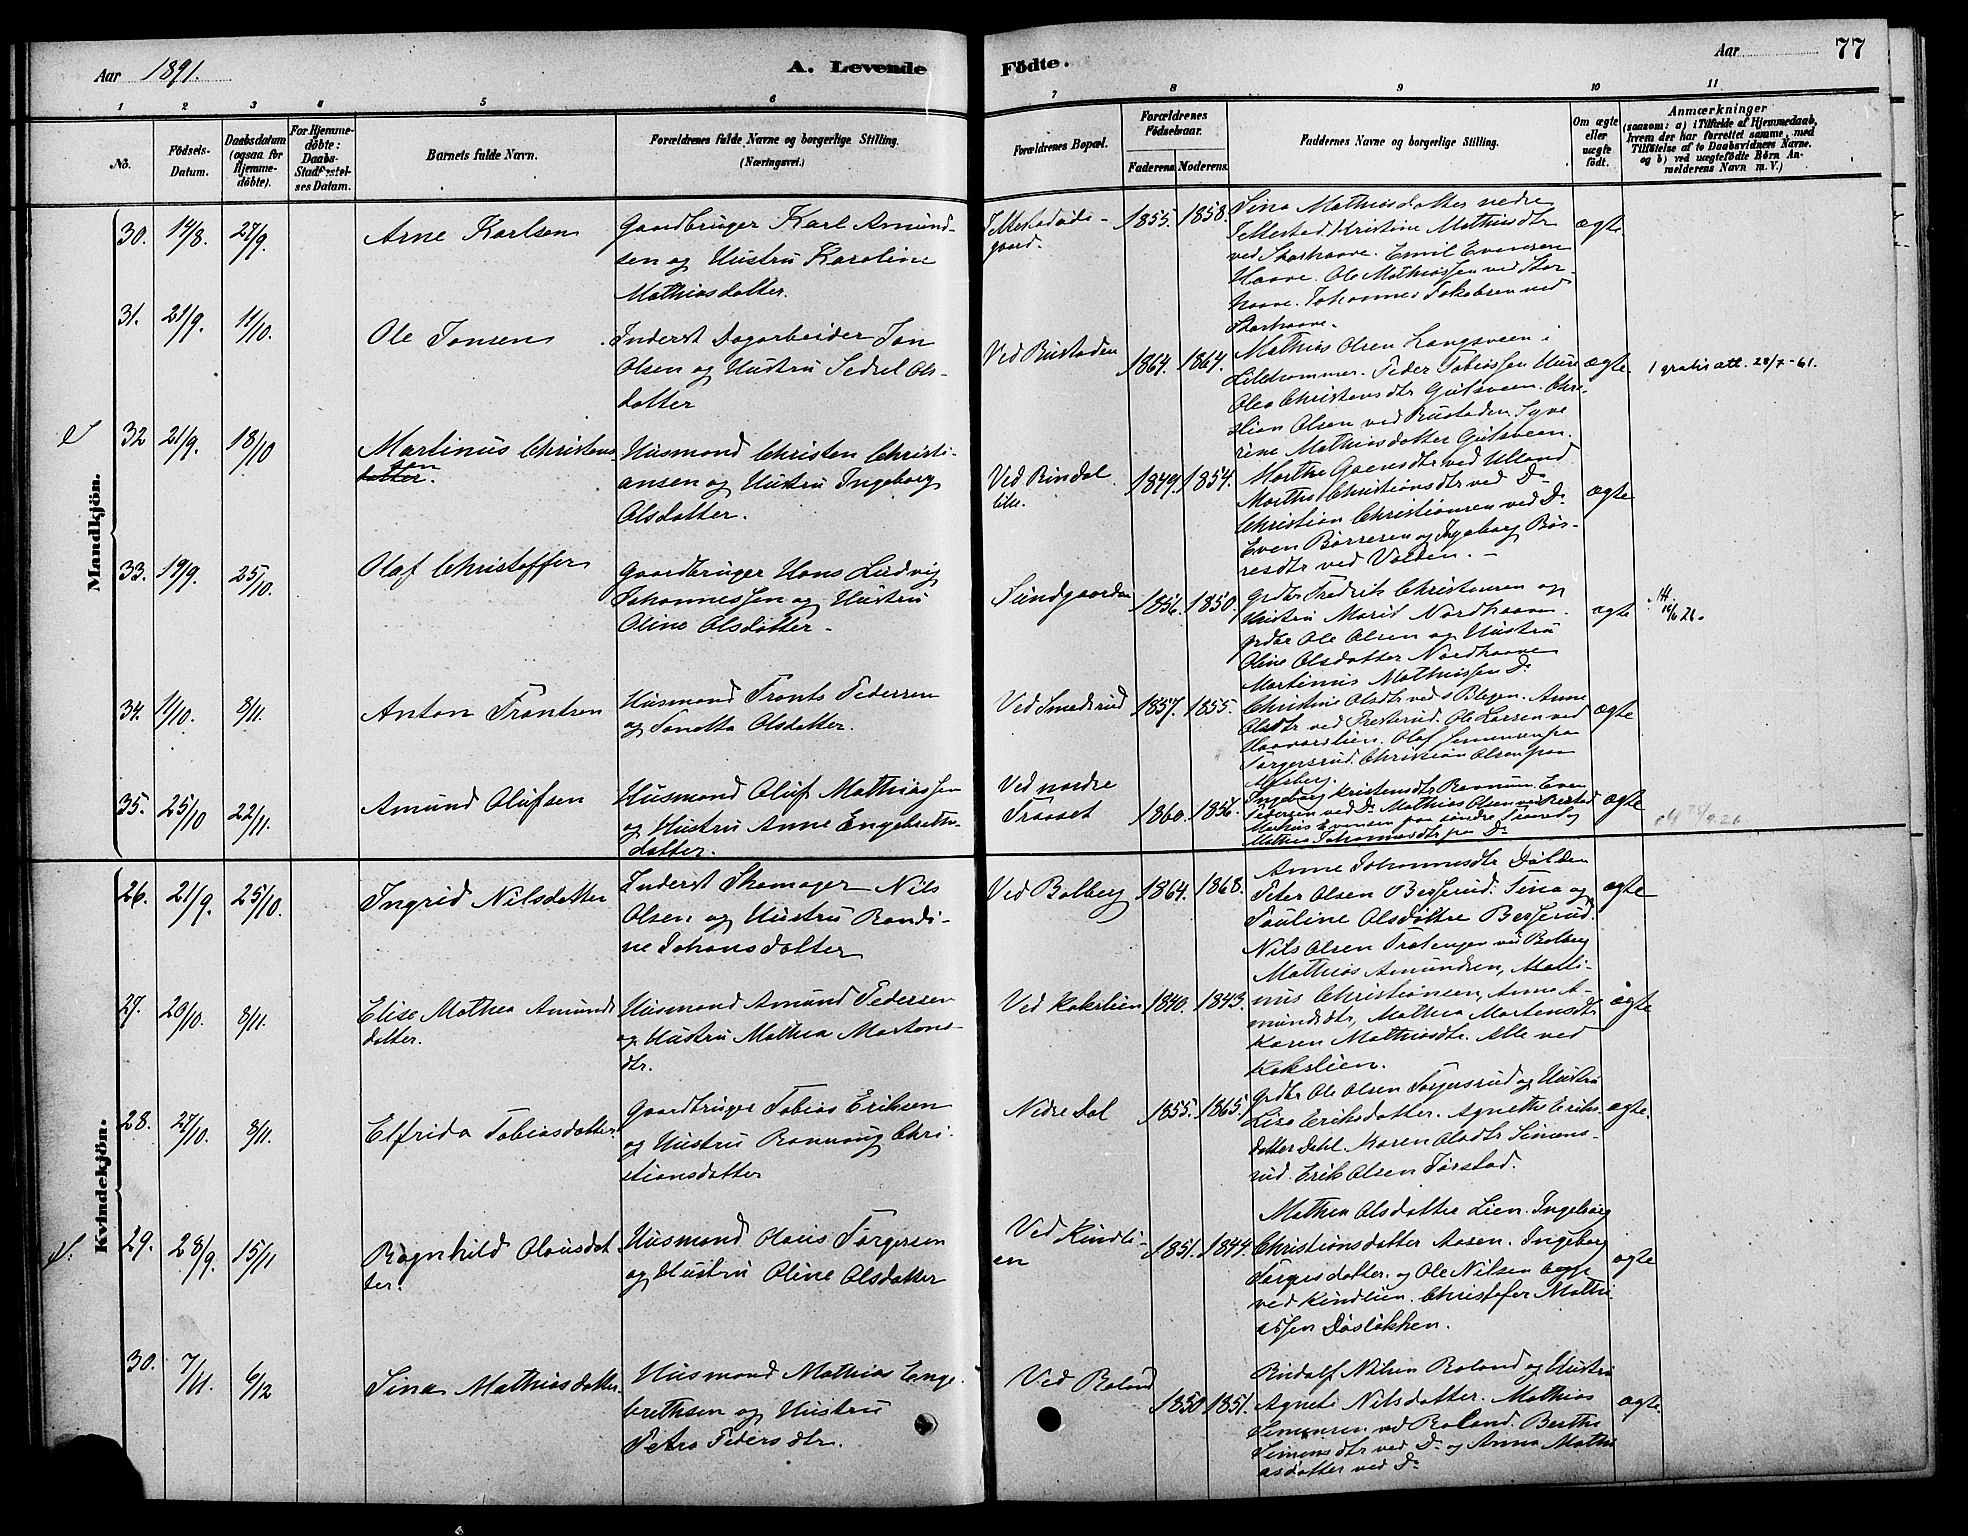 Aar 1891.
A. Levende
Födte.
Aar
77
1 2 3 4 5 6 7 8 9 10 11
No.
Födsels-
Datum.
Daabsdatum
(ogsaa for
Hjemme-
döbte).
For Hjemme-
döbte:
Daabs-
Stadfæstel-
ses Datum.
Barnets fulde Navn.
Forældrenes fulde Navne og borgerlige Stilling.
(Næringsvei.)
Forældrenes Bopæl.
Forældrenes
Födselsaar.
Faderens. Moderens.
Faddernes Navne og borgerlige Stilling.
Om ægte
eller
uægte
födt.
Anmærkninger
(saasom: a) i Tilfælde af Hjemmedaab,
hvem der har forrettet samme, med
Tilföielse af to Daabsvidners Navne.
og b) ved uægtefödte Börn An-
melderens Navn m. V.)
Mandkjön.
30. 14/8. 27/9.
Arne Karlsen
Gaardbruger Karl Amund-
sen og Hustru Karoline
Mathiasdatter.
gaard.
1855. 1858.
Sina Mathiasdatter nedre
Kristine Mathiasdtr
ved Storhaave. Emil Evensen
Haave. Ole Mathiassen ved Stor-
haave. Johannes Jakobsen ved
Storhaave.
ægte
31. 21/9. 11/10.
Ole Jonsen
Inderst Dagarbeider Jon
Olsen og Hustru Sedsel Ols-
datter
Ved Rustaden
1864. 1867.
Mathias Olsen Langsveen i
Lillehammer. Peder Tobiassen
Olea Christensdtr Gutsveen. Chri-
stian Olsen ved Rustaden. Syve
rine Mathiasdatter Gutsveen.
ægte
1 gratis att. 28/7-61.
32 21/9. 18/10
Martinus Christens
datter.
Husmand Christen Christi-
ansen og Hustru Ingeborg
Olsdatter.
Ved Rindal
lille.
1849. 1854.
Marthe ved
Marthe Christiansdtr ved Do
Christian Christiansen ved Do
Even Børresen og Ingeborg Bør-
resdtr ved Volden. -
ægte
33. 19/9. 25/10.
Olaf Christoffer
Gaardbruger Hans Ludvig
Johannessen og Hustru
Oline Olsdatter -
Sundgaarden
1856. 1850.
Grdbr Fredrik Christensen og
Hustru Marit Nordhaave.
Grdbr Ole Olsen og Hustru
Oline Olsdatter Nordhaave
Martinus Mathiassen Do
ægte
34. 11/10. 8/11.
Anton Frantsen
Husmand Frants Pedersen
og Tonetta Olsdatter.
Ved Smedsrud
1857. 1855.
Christine Olsdtr ved Blegen. Anne
Olsdtr ved Presterud. Ole Larsen ved
Haavarslien. Olaf Simensen paa
Torgersrud. Christian Olsen paa
ægte
35. 25/10 22/11.
Amund Olufsen
Husmand Oluf Mathiassen
og Hustru Anne Engebrets-
datter.
Ved nordre
1860. 1856.
Ingeborg Kristensdtr Rannum. Even
Pedersen ved Do Mathias Olsen ved
Mathias Evensen paa søndre
Mathea Johannesdtr paa Do
ægte
Kvindekjön.
26. 21/9. 25/10.
Ingrid Nilsdatter
Inderst Skomager Nils
Olsen og Hustru Randi-
ne Johansdatter
Ved Bolberg
1864. 1868.
Anne Johannesdtr
Peter Olsen Tina og
Pauline Olsdøttre
Nils Olsen ved Bolberg
ægte
27. 20/10. 8/11.
Elise Mathea Amunds
datter.
Husmand Amund Pedersen
og Hustru Mathea Martens-
dtr.
Ved Kakslien
1840. 1843.
Mathias Amundsen, Marti-
nus Christiansen, Anne A-
mundsdtr, Mathea Martensdtr
Karen Mathiasdtr. Alle ved
Kakslien.
ægte
28. 27/10. 8/11.
Elfrida Tobiasdatter
Gaardbruger Tobias Eriksen
og Hustru Rannoug Chri-
stiansdatter
Nedre Dal
1855. 1865.
Grdbr Ole Olsen Torgersrud og Hustru
Lise Eriksdatter. Agnethe Eriks-
datter Dahl. Karen Olsdtr Simens-
rud. Erik Olsen Torstad.
ægte.
29. 28/9. 15/11
Ragnhild Olausdat
ter.
Husmand Olaus Torgersen
og Hustru Oline Olsdatter
Ved Kindli-
en
1851. 1844.
Mathea Olsdatter Lien. Ingeborg
Christiansdatter Aasen. Ingeborg
Torgersdatter. og Ole Nilsen begge
ved Kindlien. Christofer Mathi
assen Døsløkken.
ægte
30. 7/11. 6/12
Sina Mathiasdatter
Husmand Mathias Enge
brethsen og Hustru
Petra Pedersdtr.
Ved Roland
1850 1851.
Rudolf Nilsen Roland og Hustru
Agnete Nilsdatter. Mathias
Simensen ved Roland. Berthe
Simensdtr ved Do og Anna Mathi
asdatter ved Do
ægte.